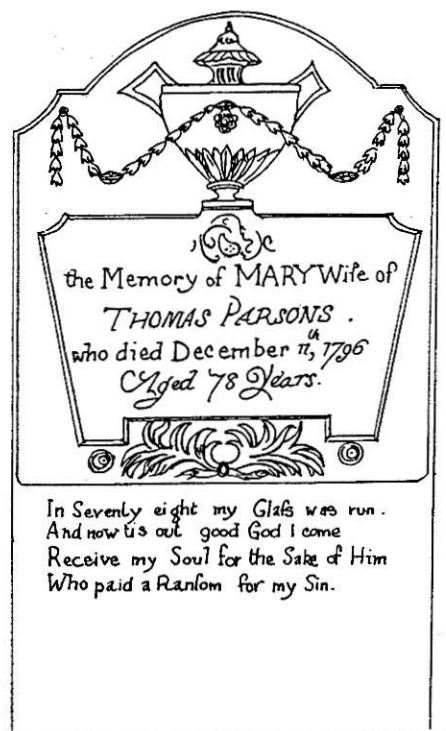 the Memory of MARY Wife of
THOMAS PARSONS.
who died December 11th, 1796
Aged 78 Years.
In Seventy eight my Glaſs was run.
And now tis out good God I come
Receive my Soul for the Sake of Him
Who paid a Ranſom for my Sin.